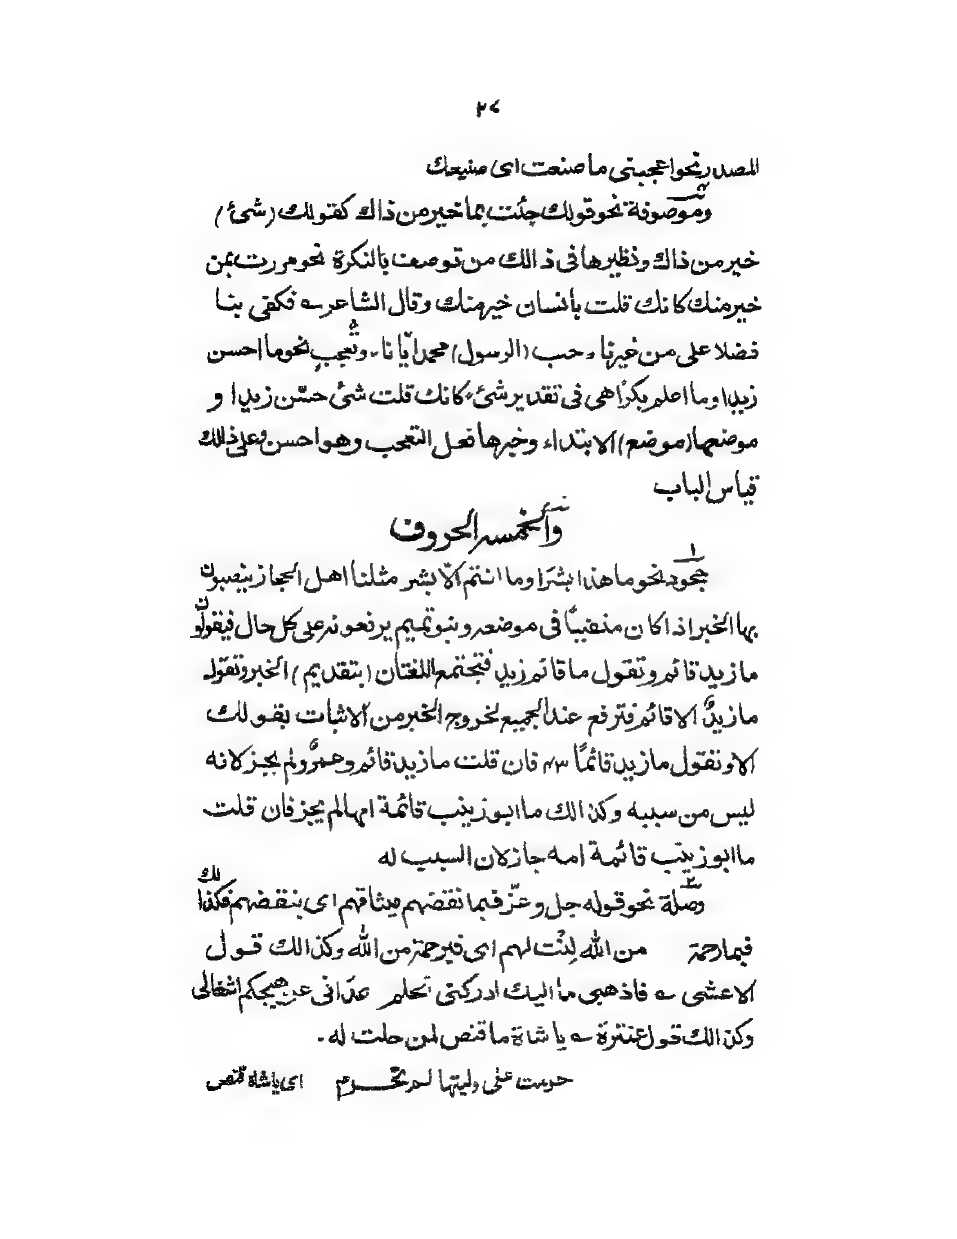 ٢٧
المصدر نحو اعجبنى ما صنعت اى صنيعك
وموصوفة نحو قولك جئت بما خير من ذاك كقولك (شئ)
خير من ذاك ونظيرها فى ذالك من توصف بالنكرة نحو مررت بمن
خير منك كانك قلت بانسان خير منك وقال الشاعر ؎ فكفى بنا
فضلا على من غيرنا ٭ حب (الرسول) محمد ايّانا ٭ وتعجب نحو ما احسن
زيدا وما اعلم بكرًا هى فى تقدير شئ ٭ كانك قلت شئ حسّن زيدا و
موضعها (موضع) الابتداء وخبرها فعل التعجب وهو احسن وعلى ذالك
قياس الباب
والخمسه الحروف
١
جحود نحو ما هذا بشرًا وما انتم الّا بشر مثلنا اهل الحجاز ينصبون
بها الخبر اذا كان منفيًا فى موضعه وبنو تميم يرفعونه على كل حال فيقولون
ما زيد قائم وتقول ما قائم زيد فتجتمع اللغتان (بتقديم) الخبر وتقول
ما زيدٌ الا قائم فترفع عند الجميع لخروج الخبر من الاثبات بقولك
الا وتقول ما زيد قائمًا ٤٣ فان قلت ما زيد قائم وعمرٌو لم يجز لانه
ليس من سببه وكذالك ما ابو زينب قائمة امها لم يجز فان قلت
ما ابو زينب قائمة امه جاز لان السبب له
٢
وصلة نحو قوله جل وعزّ فبما نقضهم ميثاقهم اى بنقضهم فكذالك
فبما رحمة من الله لِنْتَ لهم اى فبرحمة من الله وكذالك قول
الاعشى ؎ فاذهبى ما اليك ادركنى الحلم عدانى عن هيجكم اشغالى
وكذالك قول عنترة ؎ يا شاة ما قنص لمن حلت له ٠
حرمت على وليتها لم تحرم اى يا شاة قنص